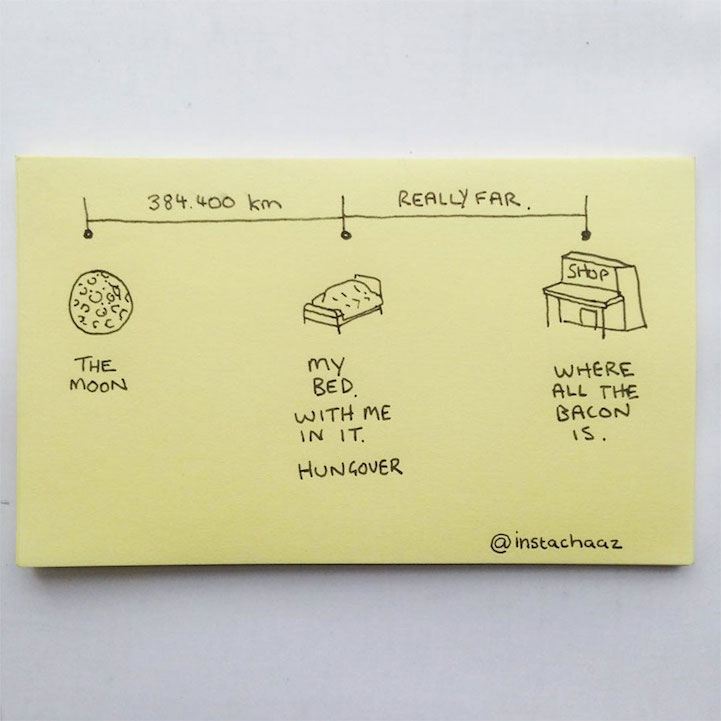 384.400 km
REALLY FAR.
SHOP
THE
MOON
MY
BED.
WITH ME
IN IT.
HUNGOVER
WHERE
ALL THE
BACON
IS.
@instachaaz